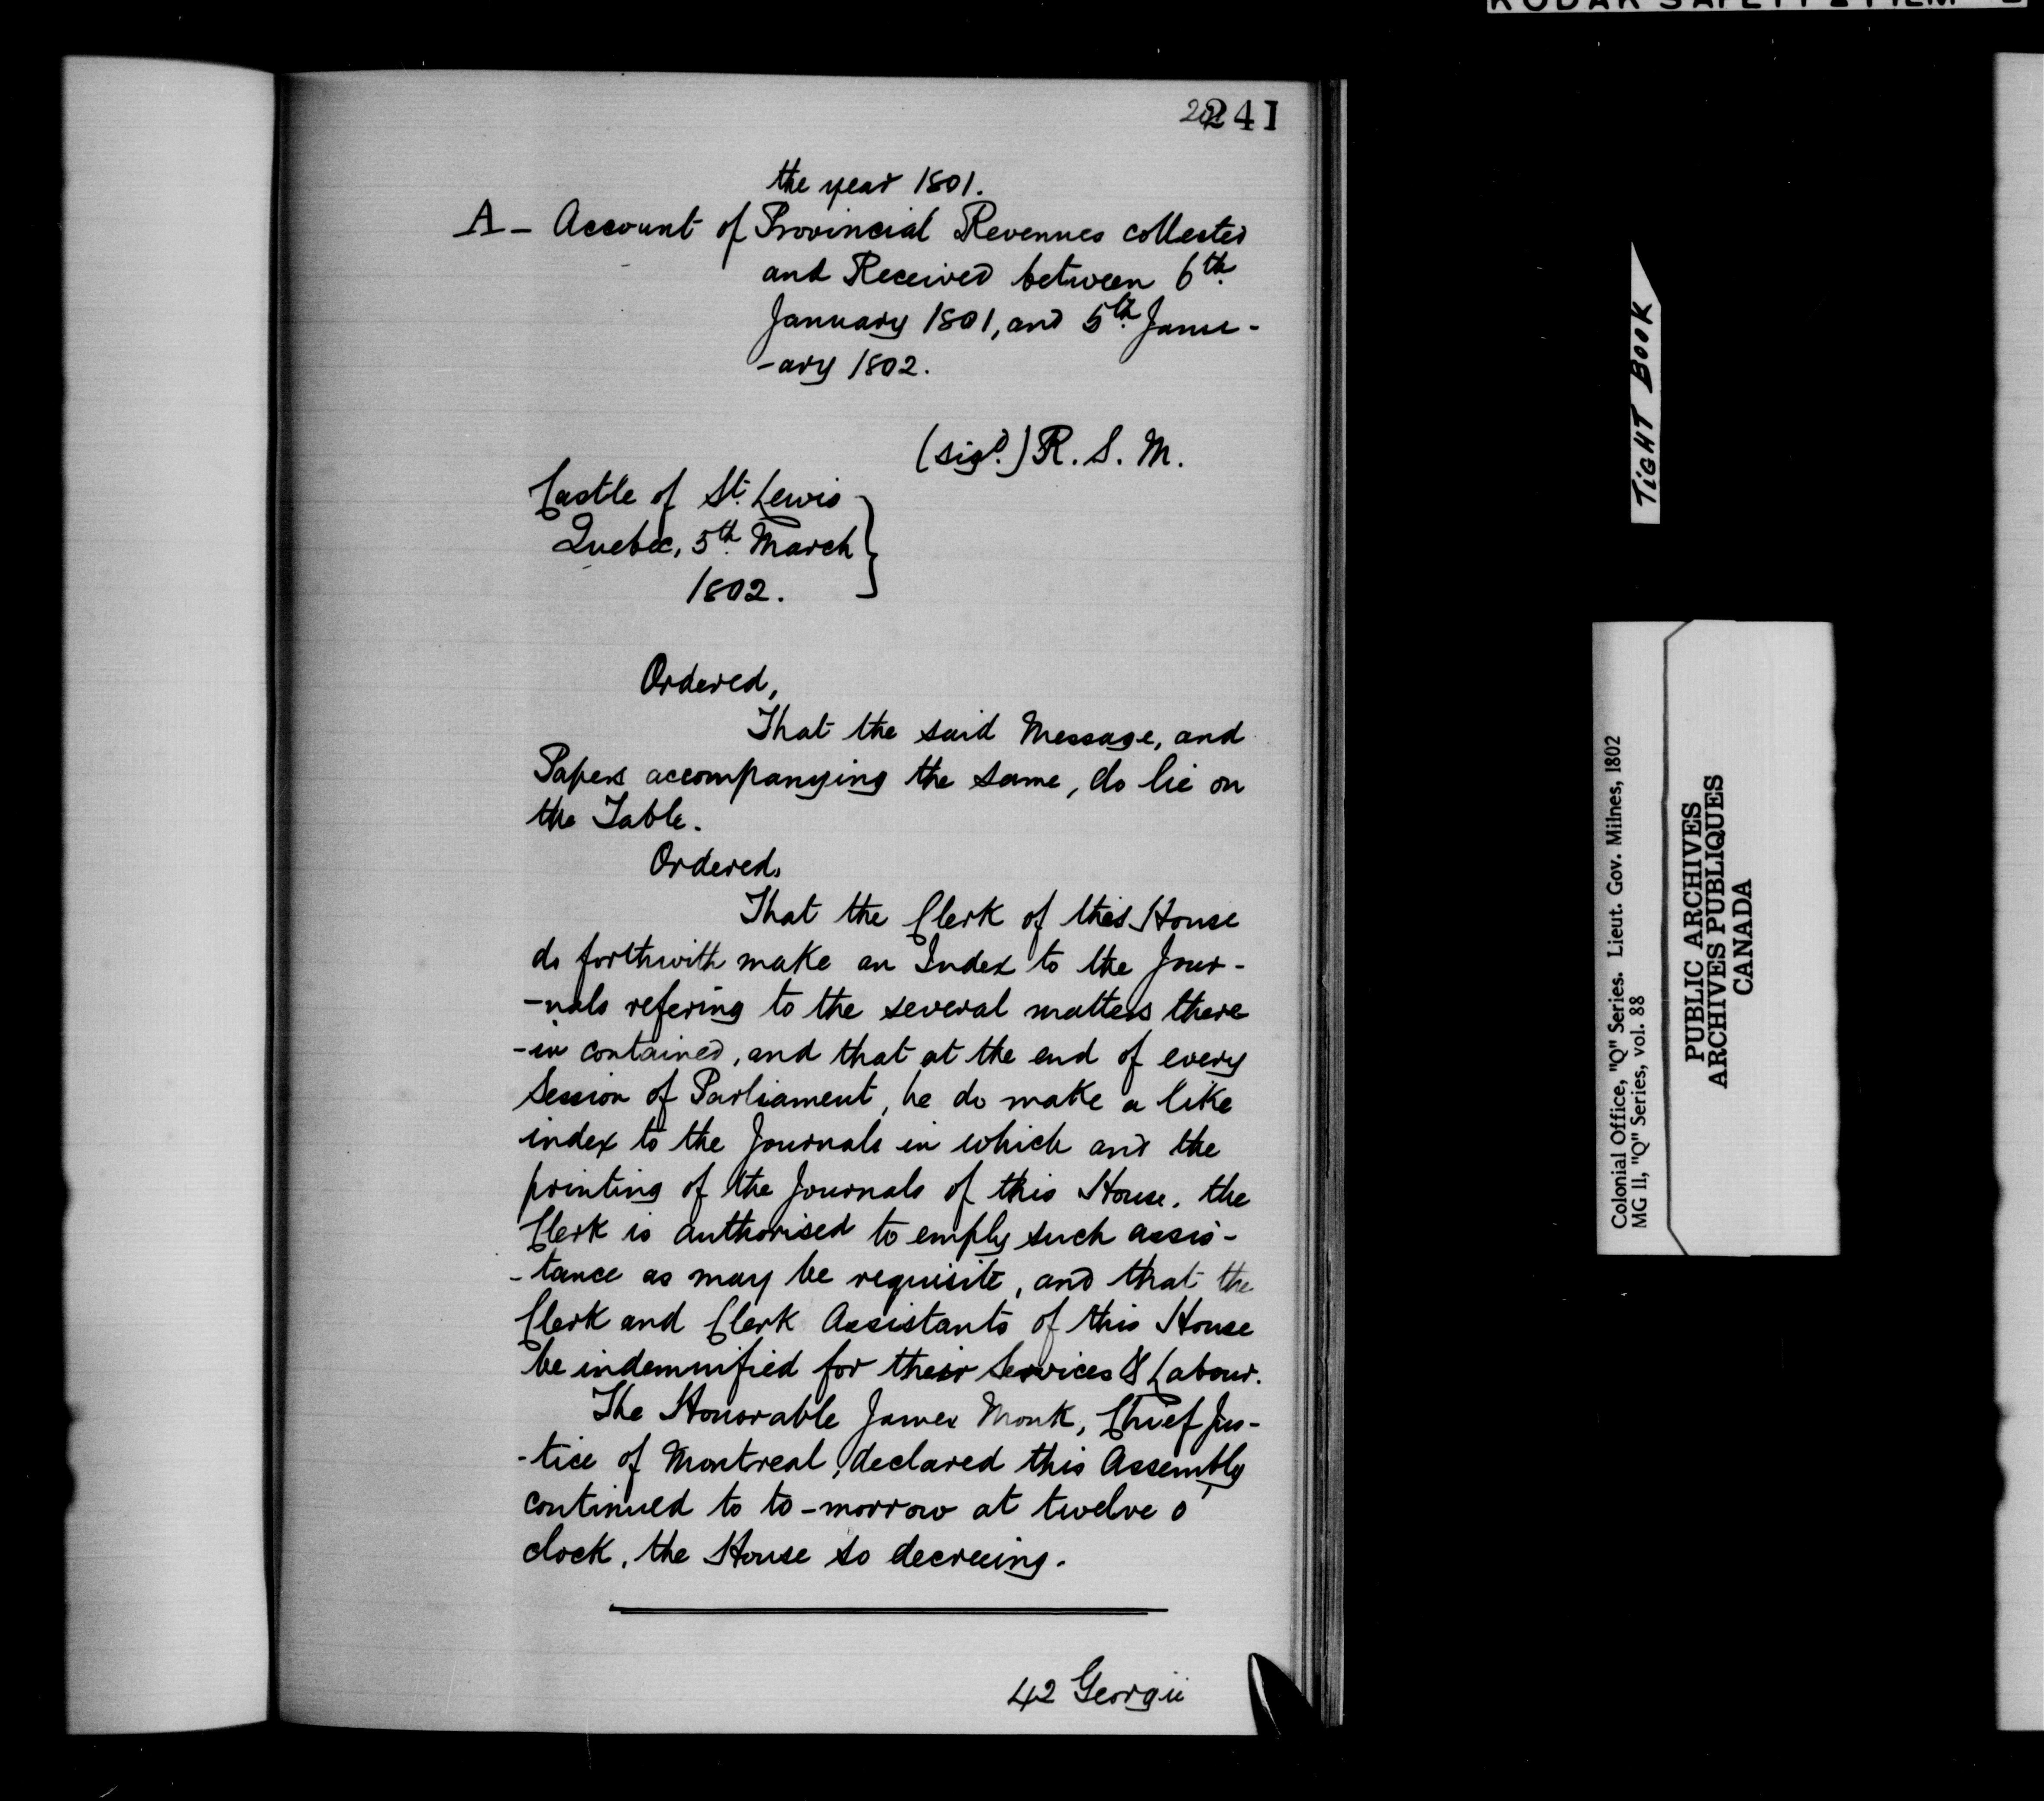 241
the year 1801.
A - Account of Provincial Revenues collected
and Received between 6th
January 1801, and 5th Janu-
-ary 1802.
(sigd.) R. S. M.
Castle of St. Lewis
Quebec, 5th March
1802.
Ordered,
That the said Message, and
Papers accompanying the same, do lie on
the Table.
Ordered,
That the Clerk of this House
do forthwith make an Index to the Jour-
-nals refering to the several matters there
-in contained, and that at the end of every
Session of Parliament, he do make a like
index to the Journals in which and the
printing of the Journals of this House, the
Clerk is authorised to employ such assis-
-tance as may be requisite, and that the
Clerk and Clerk Assistants of this House
be indemnified for their Services & Labour.
The Honorable James Monk, Chief Jus-
-tice of Montreal, declared this Assembly
continued to to-morrow at twelve o'
clock, the House so decreeing.
42 Georgii
TIGHT BOOK
Colonial Office, "Q" Series. Lieut. Gov. Milnes, 1802
MG 11, "Q" Series, vol. 88
PUBLIC ARCHIVES
ARCHIVES PUBLIQUES
CANADA